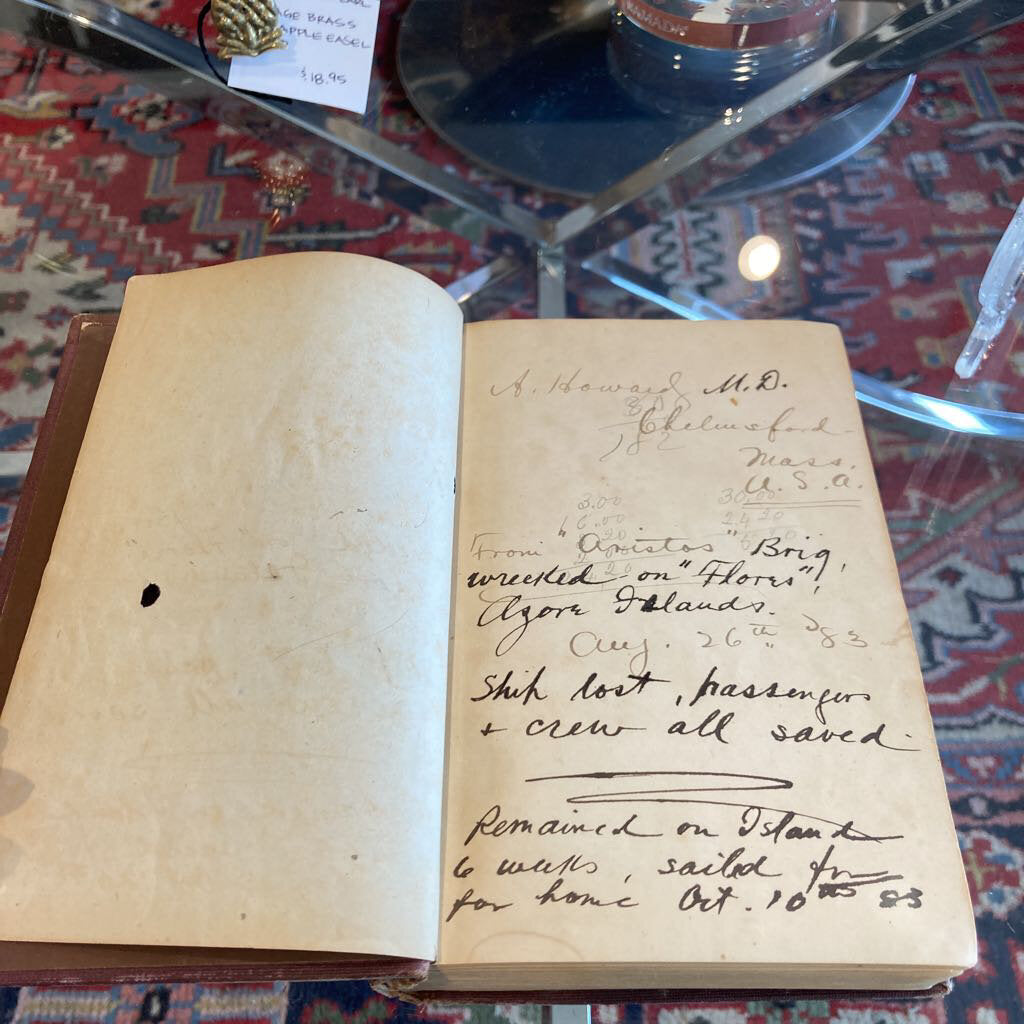 AGE BRASS
APPLE EASEL
$18.95
A. Howard M.D.
Chelmsford
Mass.
U.S.A.
3.00 30.00
6.00 24.20
From "Aristos" Brig,
wrecked on "Flores",
Azore Islands.
Aug. 26th '83
Ship lost, passengers
+ crew all saved.
Remained on Island
6 weeks, sailed
for home Oct. 10 83